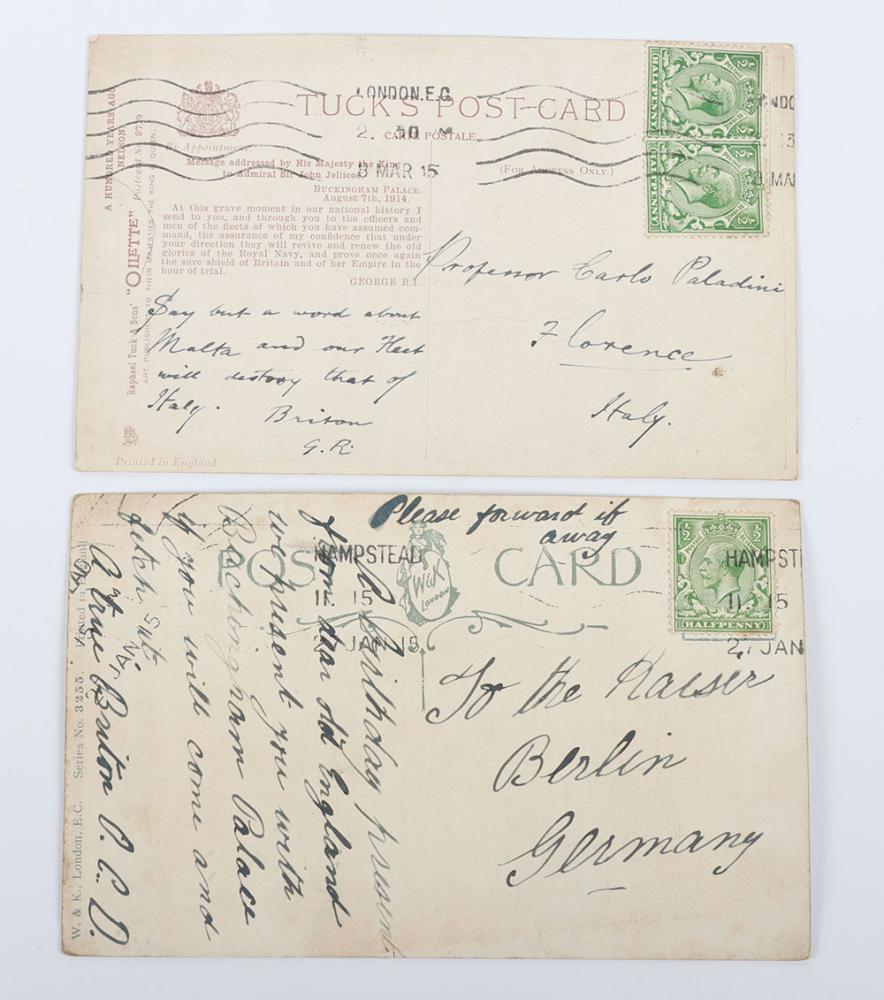 LONDON.E.C
2. 30 M
8 MAR 15
TUCK'S POST CARD
CARTE POSTALE.
(FOR ADDRESS ONLY.)
By Appointment
Message addressed by His Majesty the King
to Admiral Sir John Jellicoe
BUCKINGHAM PALACE.
August 7th, 1914.
At this grave moment in our national history I
send to you, and through you to the officers and
men of the fleets of which you have assumed com-
mand, the assurance of my confidence that under
your direction they will revive and renew the old
glories of the Royal Navy, and prove once again
the sure shield of Britain and of her Empire in the
hour of trial.
GEORGE R.I.
A HUNDRED YEARS AGO
NELSON
Raphael Tuck & Sons' "OILETTE" Postcard No. 8759
ART PUBLISHERS TO THEIR MAJESTIES THE KING & QUEEN.
Say but a word about
Malta and our Fleet
will destroy that of
Italy. Briton
G.R.
Professor Carlo Paladini
Florence
Italy.
HALFPENNY
½ ½
HALFPENNY
½ ½
NDO
MAR
Printed in England.
Please forward if
away
POST CARD
W&K
LONDON
HAMPSTEAD
11. 15
JAN 15
½ ½
HALFPENNY
HAMPST
11. 15
27 JAN
To the Kaiser
Berlin
Germany
A birthday present
from dear old England
we present you with
Buckingham Palace
if you will come and
fetch it
A true Briton
W. & K., London, E.C. Series No. 3255. Printed in